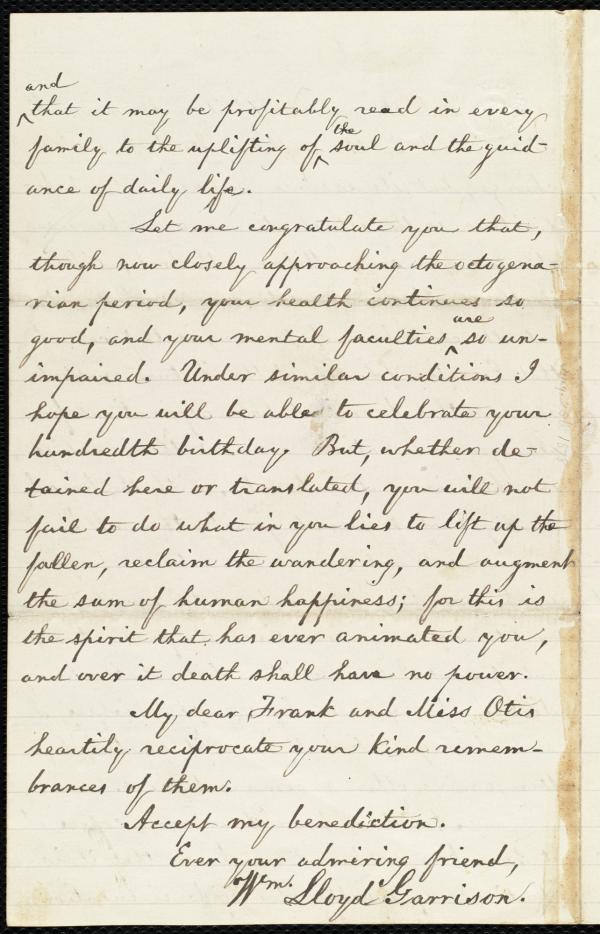 and
that it may be profitably read in every
family to the uplifting of the soul and the guid-
ance of daily life.
Let me congratulate you that,
though now closely approaching the octogena-
rian period, your health continues so
good, and your mental faculties are so un-
impaired. Under similar conditions I
hope you will be able to celebrate your
hundredth birthday. But, whether de-
tained here or translated, you will not
fail to do what in you lies to lift up the
fallen, reclaim the wandering, and augment
the sum of human happiness; for this is
the spirit that has ever animated you,
and over it death shall have no power.
My dear Frank and Miss Otis
heartily reciprocate your kind remem-
brances of them.
Accept my benediction.
Ever your admiring friend,
Wm. Lloyd Garrison.